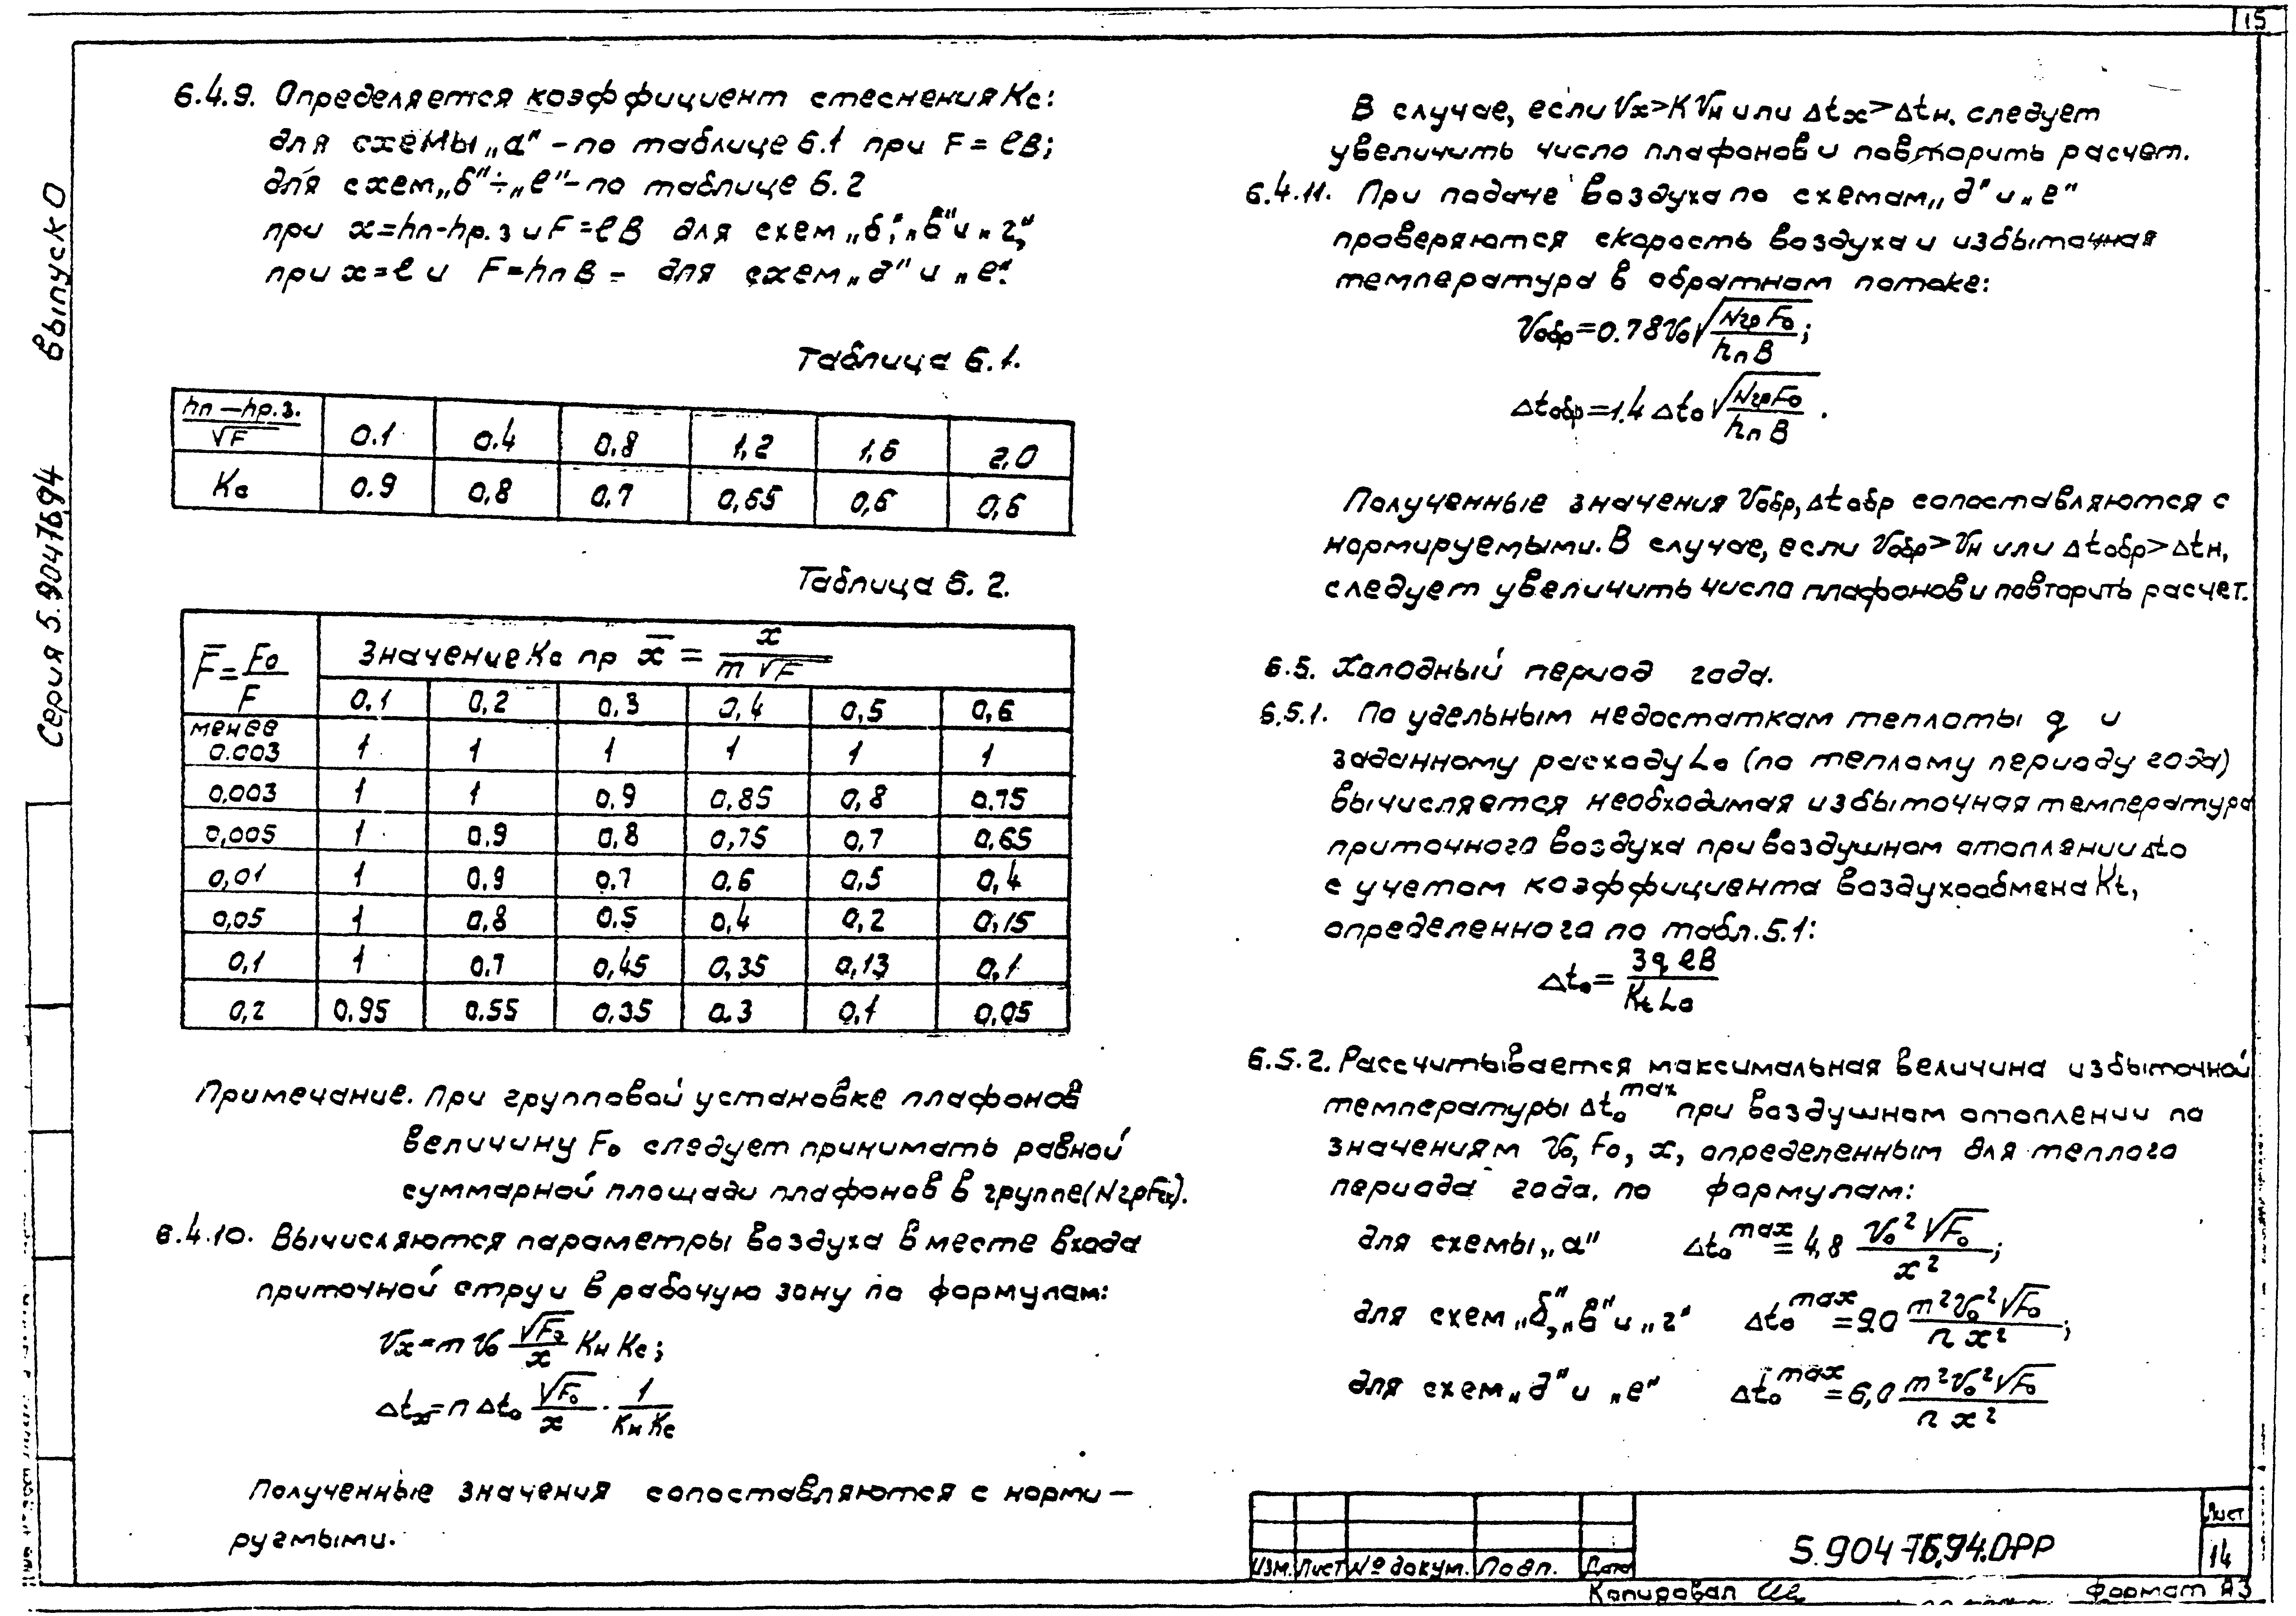 15
Выпуск 0
Серия 5.904-76.94
6.4.9. Определяется коэффициент стеснения Кс:
для схемы „а" – по таблице 6.1 при F = ℓB;
для схем „б"÷„е" – по таблице 6.2
при x=hп-hр.з и F=ℓB для схем „б", „в" и „г",
при x=ℓ и F=hпB – для схем „д" и „е".
Таблица 6.1.
hп – hр.з. / √F | 0.1 | 0.4 | 0,8 | 1,2 | 1,6 | 2,0
Кс | 0.9 | 0,8 | 0,7 | 0,65 | 0,6 | 0,6
Таблица 6.2.
F̅ = F₀/F | Значение Кс пр x̅ = x / m√F
0.1 | 0,2 | 0,3 | 0,4 | 0,5 | 0,6
менее 0.003 | 1 | 1 | 1 | 1 | 1 | 1
0,003 | 1 | 1 | 0,9 | 0,85 | 0,8 | 0.75
0,005 | 1 | 0.9 | 0,8 | 0,75 | 0,7 | 0,65
0,01 | 1 | 0.9 | 0.7 | 0.6 | 0,5 | 0,4
0,05 | 1 | 0,8 | 0.5 | 0,4 | 0,2 | 0,15
0,1 | 1 | 0.7 | 0,45 | 0,35 | 0,13 | 0,1
0,2 | 0.95 | 0.55 | 0,35 | 0.3 | 0,1 | 0,05
Примечание. При групповой установке плафонов
величину F₀ следует принимать равной
суммарной площади плафонов в группе (NгрF₀).
6.4.10. Вычисляются параметры воздуха в месте входа
приточной струи в рабочую зону по формулам:
Vx = m V₀ √F₀/x Кн Кс;
Δtx = n Δt₀ √F₀/x · 1/(Кн Кс)
Полученные значения сопоставляются с норми –
руемыми.
В случае, если Vx > К Vн или Δtx > Δtн, следует
увеличить число плафонов и повторить расчет.
6.4.11. При подаче воздуха по схемам „д" и „е"
проверяются скорость воздуха и избыточная
температура в обратном потоке:
Vобр = 0.78 V₀ √(Nгр F₀ / hп B);
Δtобр = 1.4 Δt₀ √(Nгр F₀ / hп B).
Полученные значения Vобр, Δtобр сопоставляются с
нормируемыми. В случае, если Vобр > Vн или Δtобр > Δtн,
следует увеличить число плафонов и повторить расчет.
6.5. Холодный период года.
6.5.1. По удельным недостаткам теплоты q и
заданному расходу L₀ (по теплому периоду года)
вычисляется необходимая избыточная температура
приточного воздуха при воздушном отоплении Δt₀
с учетом коэффициента воздухообмена Кt,
определенного по табл. 5.1:
Δt₀ = 3q ℓB / Кt L₀
6.5.2. Рассчитывается максимальная величина избыточной
температуры Δt₀ᵐᵃˣ при воздушном отоплении по
значениям V₀, F₀, x, определенным для теплого
периода года, по формулам:
для схемы „а" Δt₀ᵐᵃˣ = 4,8 V₀²√F₀ / x²;
для схем „б", „в" и „г" Δt₀ᵐᵃˣ = 9.0 m²V₀²√F₀ / n x²;
для схем „д" и „е" Δt₀ᵐᵃˣ = 6,0 m²V₀²√F₀ / n x²
Изм. Лист № докум. Подп. Дата
5.904-76.94.0-РР
Лист
14
Копировал
Формат А3